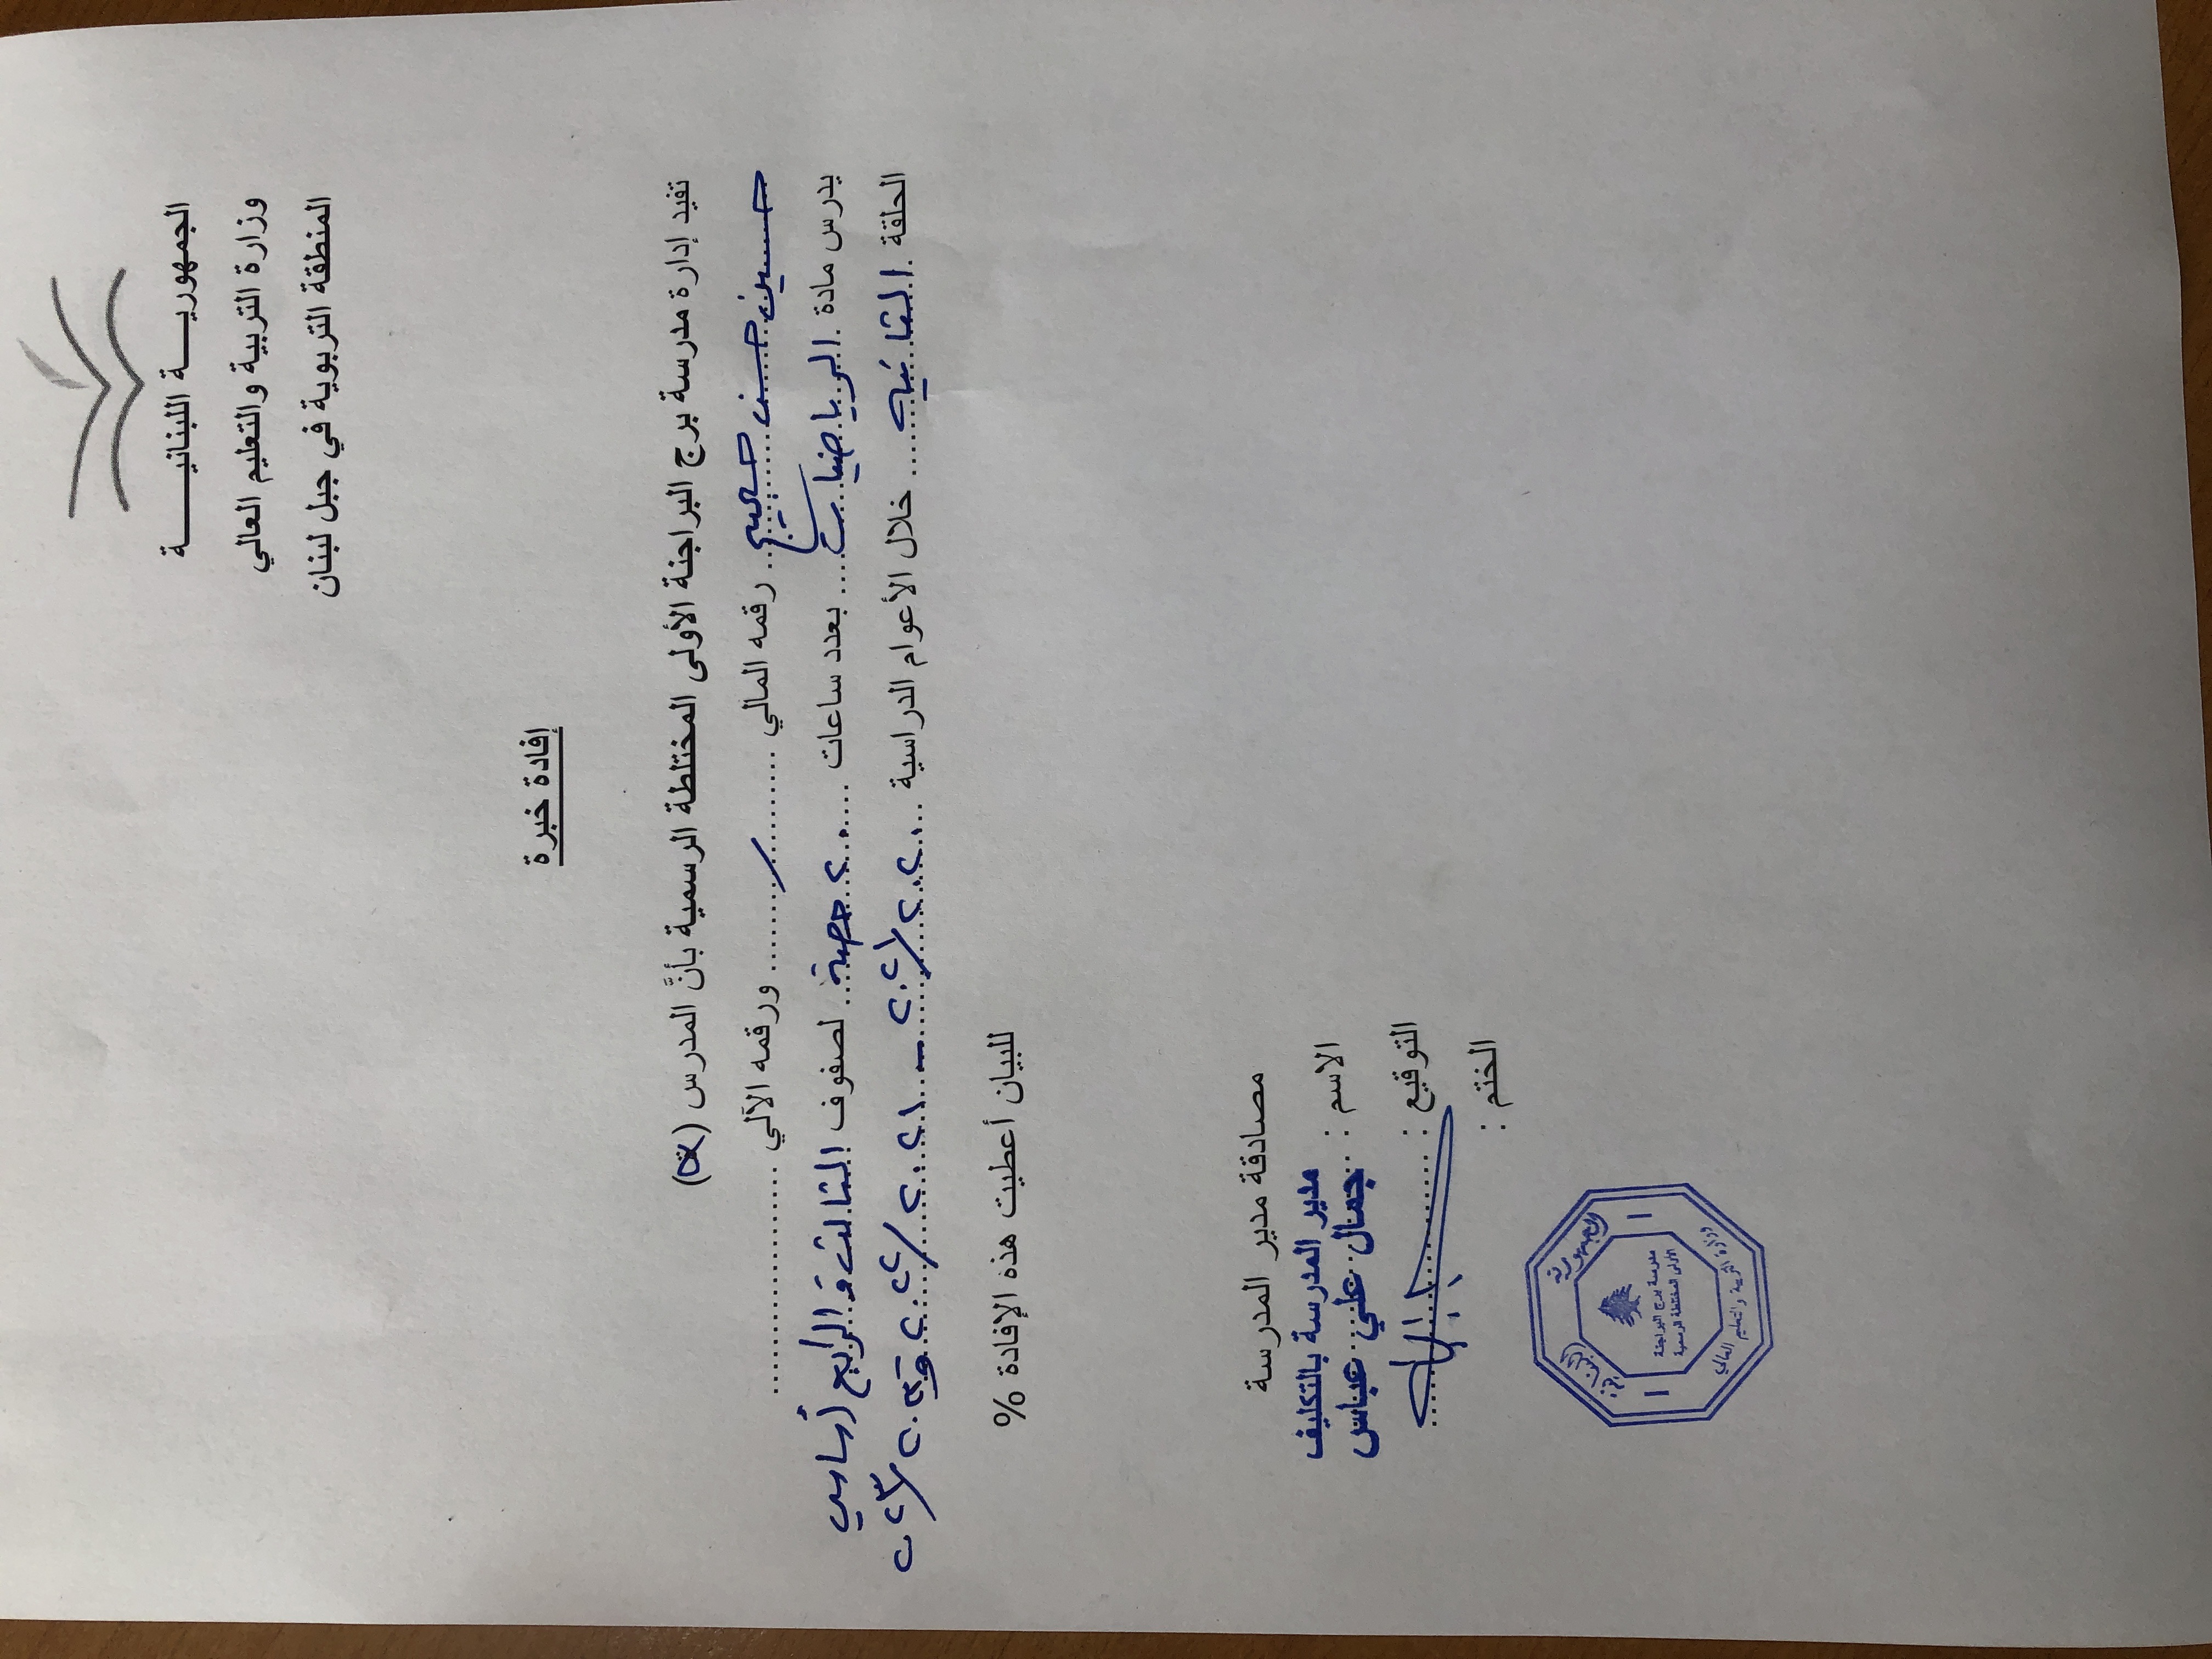 الجمهوريـــة اللبنانيـــــة
وزارة التربية والتعليم العالي
المنطقة التربوية في جبل لبنان
إفادة خبرة
تفيد إدارة مدرسة برج البراجنة الأولى المختلطة الرسمية بأنَّ المدرس (ة)
حسين حسن رقمه المالي .......... / .......... ورقمه الآلي ....................
يدرس مادة الرياضيات بعدد ساعات ٢٠ حصة لصفوف الثالث و الرابع أساسي
الحلقة الثانية خلال الأعوام الدراسية ٢٠٢٠/ ٢٠٢١ - ٢٠٢١/٢٠٢٢ و ٢٠٢٢/٢٠٢٣
للبيان أعطيت هذه الإفادة %
مصادقة مدير المدرسة
مدير المدرسة بالتكليف
الاسم : جمال علي عباس
التوقيع :
الختم :
الجمهورية اللبنانية
مدرسة برج البراجنة
الأولى المختلطة الرسمية
وزارة التربية والتعليم العالي